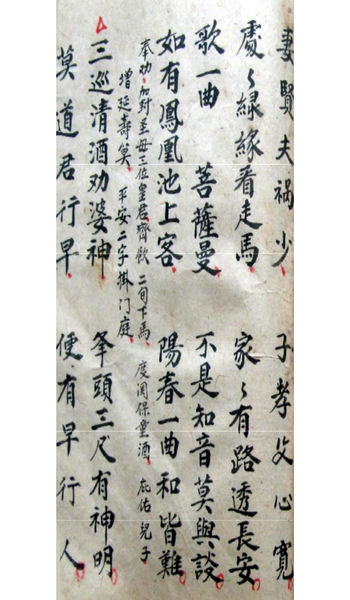 妻賢夫祸少 子孝父心寬
處〻緑緣看走馬 家〻有路透長安
歌一曲 菩薩曼 不是知音莫與談
如有鳳凰池上客 陽春一曲和皆難
奉劝加封圣母三位皇君齊歆 二旬下馬 度関保童酒 庇佑兒子
增延壽筭 平安二字掛门庭
三巡清酒劝婆神 夆頭三尺有神明
莫道君行早 便有早行人